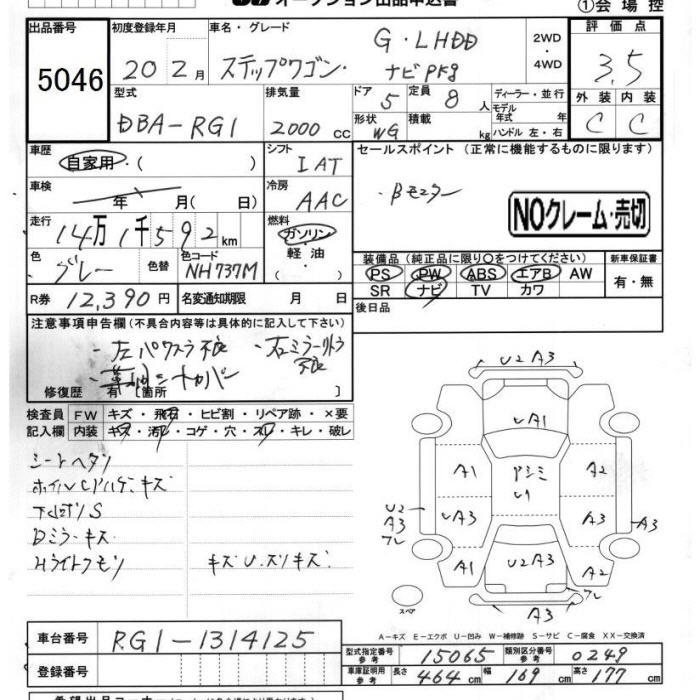 オークション出品申込書
①会場控
出品番号 5046
初度登録年月 20 2月
車名・グレード ステップワゴン・ G・LHDD ナビPKg
2WD・4WD
評価点 3.5
外装 C 内装 C
型式 DBA-RG1
排気量 2000cc
ドア 5 形状 WG
定員 8人 積載 kg
ディーラー・並行
モデル年式 年
ハンドル 左・右
車歴 自家用・( )
シフト IAT
セールスポイント (正常に機能するものに限ります)
・Bモニター
NOクレーム・売切
車検 年 月( 日)
冷房 AAC
走行 14万1千592km
燃料 ガソリン・軽油・( )
色 グレー 色替 色コード NH737M
装備品 (純正品に限り○をつけてください) 新車保証書
PS PW ABS エアB AW 有・無
SR ナビ TV カワ
R券 12,390円 名変通知期限 月 日
後日品
注意事項申告欄 (不具合内容等は具体的に記入して下さい)
・左パワスラ不良 ・右ミラー
不良
シートカバー
修復歴 有 [箇所 ]
検査員記入欄
FW キズ・飛石・ヒビ割・リペア跡・×要
内装 キズ・汚れ・コゲ・穴・スレ・キレ・破レ
シートヘタリ
ホイルCアハゲ.キズ
下回りS
Dミラーキズ
Hライトクモリ キズU.スリキズ
U2 A3
UA1
A1 アシミ U1 A2
U2 A3 ワレ UA3 A3 A3
A1 U2A3 A2
A3
スペア
A-キズ E-エクボ U-凹み W-補修跡 S-サビ C-腐食 XX-交換済
車台番号 RG1-1314125
登録番号
型式指定番号 参考 15065 類別区分番号 参考 0249
車庫証明用 参考 長さ 464cm 幅 169cm 高さ 177cm